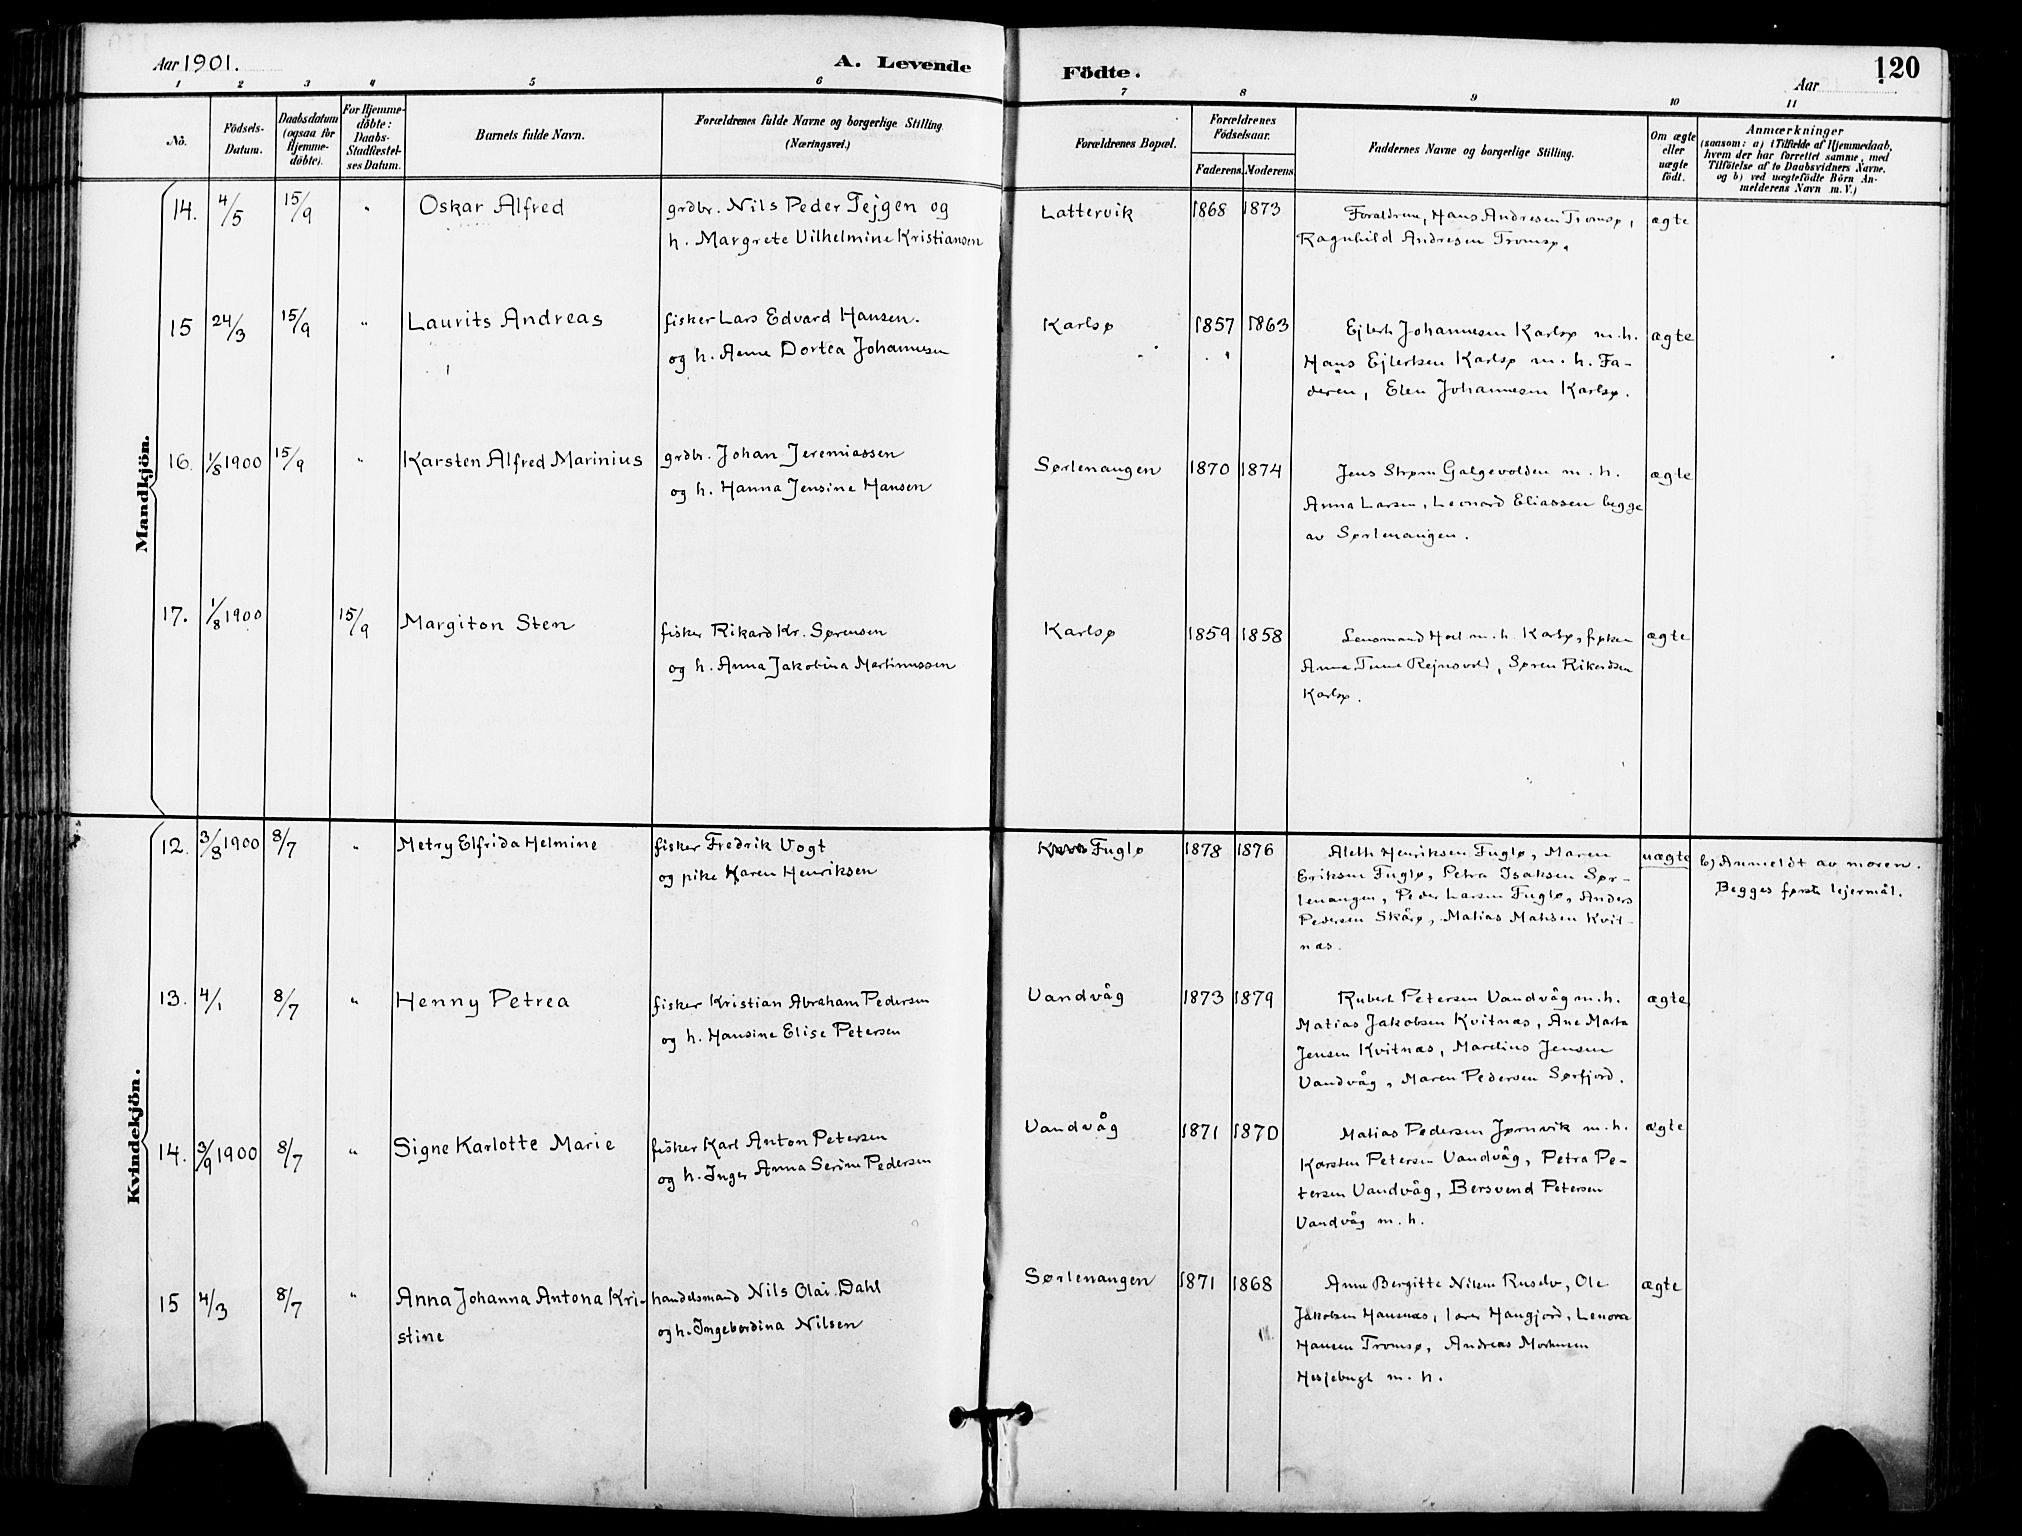 Aar 1901.
A. Levende
Födte.
Aar
120
1 2 3 4 5 6 7 8 9 10 11
No.
Födsels-
Datum.
Daabsdatum
(ogsaa for
Hjemme-
döbte).
For Hjemme-
döbte:
Daabs-
Stadfæstel-
ses Datum.
Barnets fulde Navn.
Forældrenes fulde Navne og borgerlige Stilling.
(Næringsvei.)
Forældrenes Bopæl.
Forældrenes
Födselsaar.
Faderens.
Moderens.
Faddernes Navne og borgerlige Stilling.
Om ægte
eller
uægte
födt.
Anmærkninger
(saasom: a) i Tilfælde af Hjemmedaab,
hvem der har forrettet samme, med
Tilföielse af to Daabsvidners Navne,
og b) ved uægtefödte Börn An-
melderens Navn m. V.)
Mandkjön.
14. 4/5 15/9 " Oskar Alfred
grdbr. Nils Peder Tejgen og
h. Margrete Vilhelmine Kristiansen
Lattervik 1868 1873
Forældrene, Hans Andresen Tromsø,
Ragnhild Andresen Tromsø.
ægte
15 24/3 15/9 " Laurits Andreas
fisker Lars Edvard Hansen.
og h. Anne Dortea Johannesen
Karlsø 1857 1863
Ejlert Johannesen Karlsø m.h.
Hans Ejlertsen Karlsø m. h. Fa-
deren, Elen Johannesen Karlsø.
ægte
16. 1/8 1900 15/9 " Karsten Alfred Marinius
grdbr. Johan Jeremiassen
og h. Hanna Jensine Hansen
Sørlenangen 1870 1874
Jens Strøm Galgevolden m. h.
Anna Larsen, Leonard Eliassen begge
av Sørlenangen.
ægte
17. 1/8 1900 15/9 Margiton Sten
fisker Rikard Kr. Sørensen
og h. Anna Jakobina Martinussen
Karlsø 1859 1858
Lensmand m. h. Karlsø, frøken
Anna Rejnsvold, Søren Rikardsen
Karlsø.
ægte
Kvindekjön.
12. 3/8 1900 8/7 " Metry Elfrida Helmine
fisker Fredrik Vogt
og pike Karen Henriksen
Fuglø 1878 1876
Aleth Henriksen Fuglø, Maren
Eriksen Fuglø, Petra Isaksen Sør-
lenangen, Peder Larsen Fuglø, Anders
Pedersen Skårø, Matias Matisen Kvit-
næs.
uægte
b) Anmeldt av moren.
Begges første lejermål.
13. 4/1 8/7 " Henny Petrea
fisker Kristian Abraham Pedersen
og h. Hansine Elise Petersen
Vandvåg 1873 1879
Rubert Petersen Vandvåg m. h.
Matias Jakobsen Kvitnæs, Ane Marta
Jensen Kvitnæs, Marelius Jensen
Vandvåg, Maren Pedersen Sørfjord.
ægte
14. 3/9 1900 8/7 " Signe Karlotte Marie
fisker Karl Anton Petersen
og h. Inger Anna Serine Pedersen
Vandvåg 1871 1870
Matias Pedersen Jørnvik m. h.
Karsten Petersen Vandvåg, Petra Pe-
tersen Vandvåg, Bersvend Petersen
Vandvåg m. h.
ægte
15 4/3 8/7 " Anna Johanna Antona Kri-
stine
handelsmand Nils Olai Dahl
og h. Ingebordina Nilsen
Sørlenangen 1871 1868
Anne Bergitte Nilsen Ole
Jakobsen Hansnæs, Hangjord, Lenora
Hansen Tromsø, Andreas
m. h.
ægte